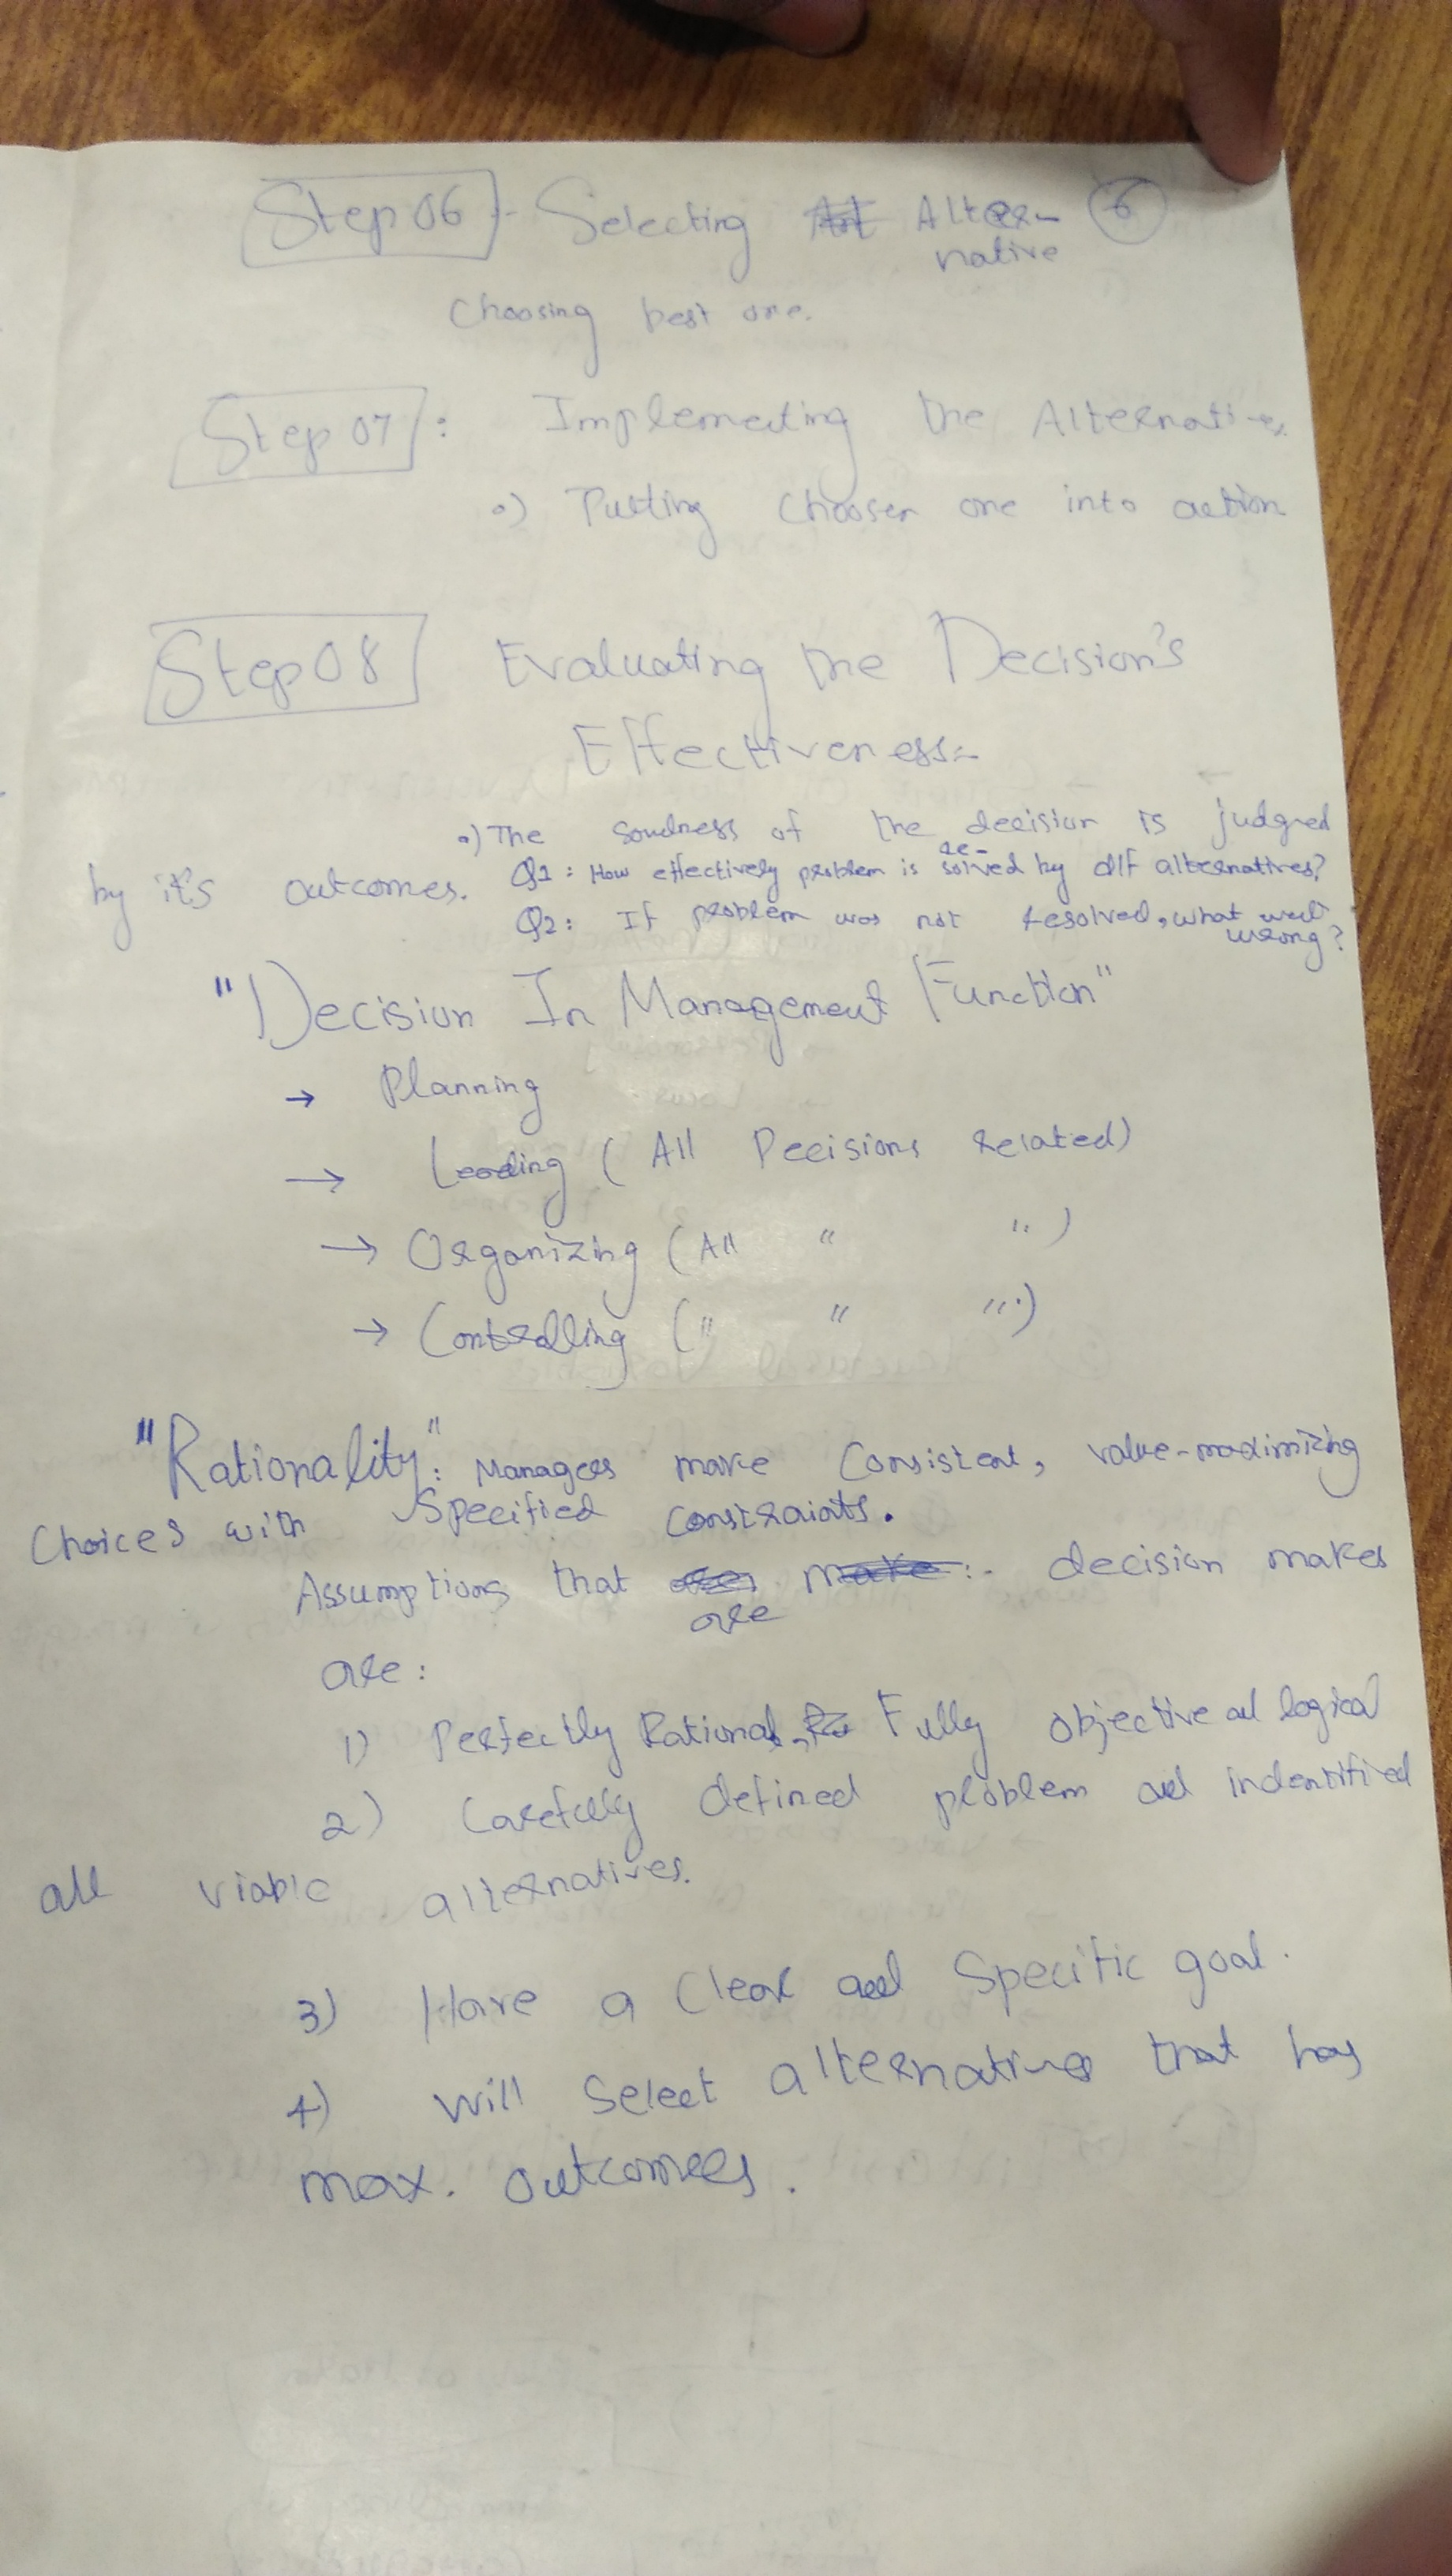 Step 06 :- Selecting Alter- 6
native
Choosing best one.
Step 07 : Implementing the Alternative.
•) Putting choosen one into action
Step 08 Evaluating the Decision's
Effectiveness:-
•) The soundness of the decision is judged
by it's outcomes. Q1 : How effectively problem is re-solved by dif alternatives?
Q2 : If problem was not resolved, what went wrong?
"Decision In Management Function"
→ Planning
→ Leading ( All Decisions Related)
→ Organizing ( All " " )
→ Controlling ( " " " )
"Rationality": Managers make Consistent, value-maximizing
Choices with Specified constraints.
Assumptions that are :- decision makes
are :
1) Perfectly Rational, Fully objective and logical
2) Carefully defined problem and indentified
all viable alternatives.
3) Have a Clear and Specific goal.
4) Will Select alternative that has
max. outcomes.